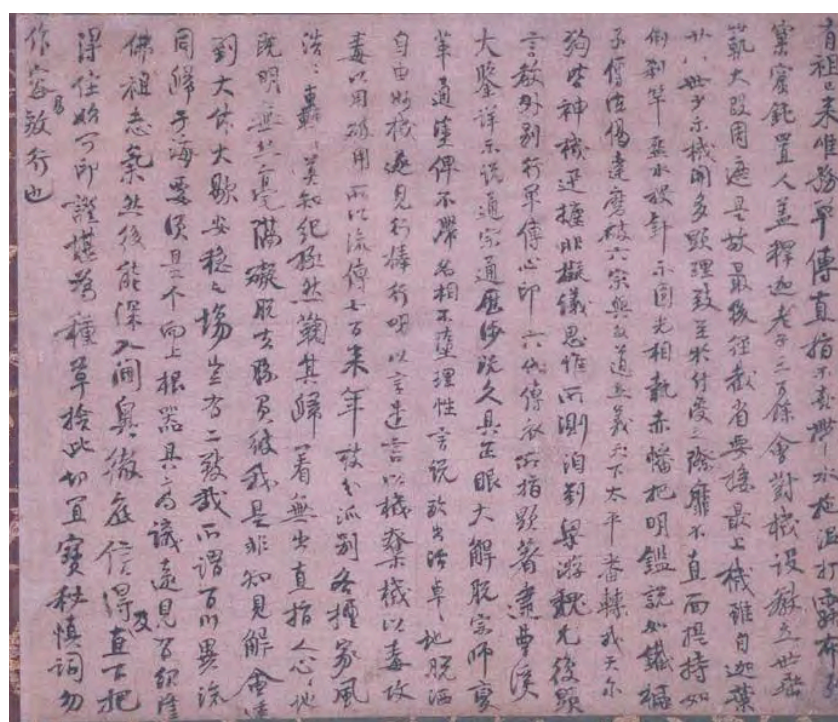 有祖已來唯務單傳直指不喜帶水拖泥打露布列
窠窟鈍置人蓋釋迦老子三百餘會對機設教立世垂
範大段周遮是故最後徑截省要接最上機雖自迦葉
廿八世少示機關多顯理致至於付受之際靡不直面提持如
倒刹竿盋水投針示圓光相執赤幡把明鑑說如鐵橛
子傳法偈達磨破六宗與外道立義天下太平番轉我天尓
狗皆神機迅捷非擬議思惟所測洎到梁游魏尤復顯
言教外別行單傳心印六代傳衣所指顯著逮曹溪
大鑒詳示說通宗通歷涉既久具正眼大解脫宗師變
革通塗俾不滯名相不墮理性言說放出活卓〻地脫洒
自由妙機遂見行棒行喝以言遣言以機奪機以毒攻
毒以用破用所以流傳七百來年枝分派別各擅家風
浩〻轟〻莫知紀極然鞠其歸著無出直指人心〻地
既明無絲毫隔礙脫去勝負彼我是非知見解會透
到大休大歇安穩之場豈有二致哉所謂百川異流
同歸于海要須是个向上根器具高識遠見有紹隆
佛祖志氣然後能深入閫奧徹底信得及直下把
得住始可印證堪為種草捨此切宜寶秘慎詞勿
作容易放行也